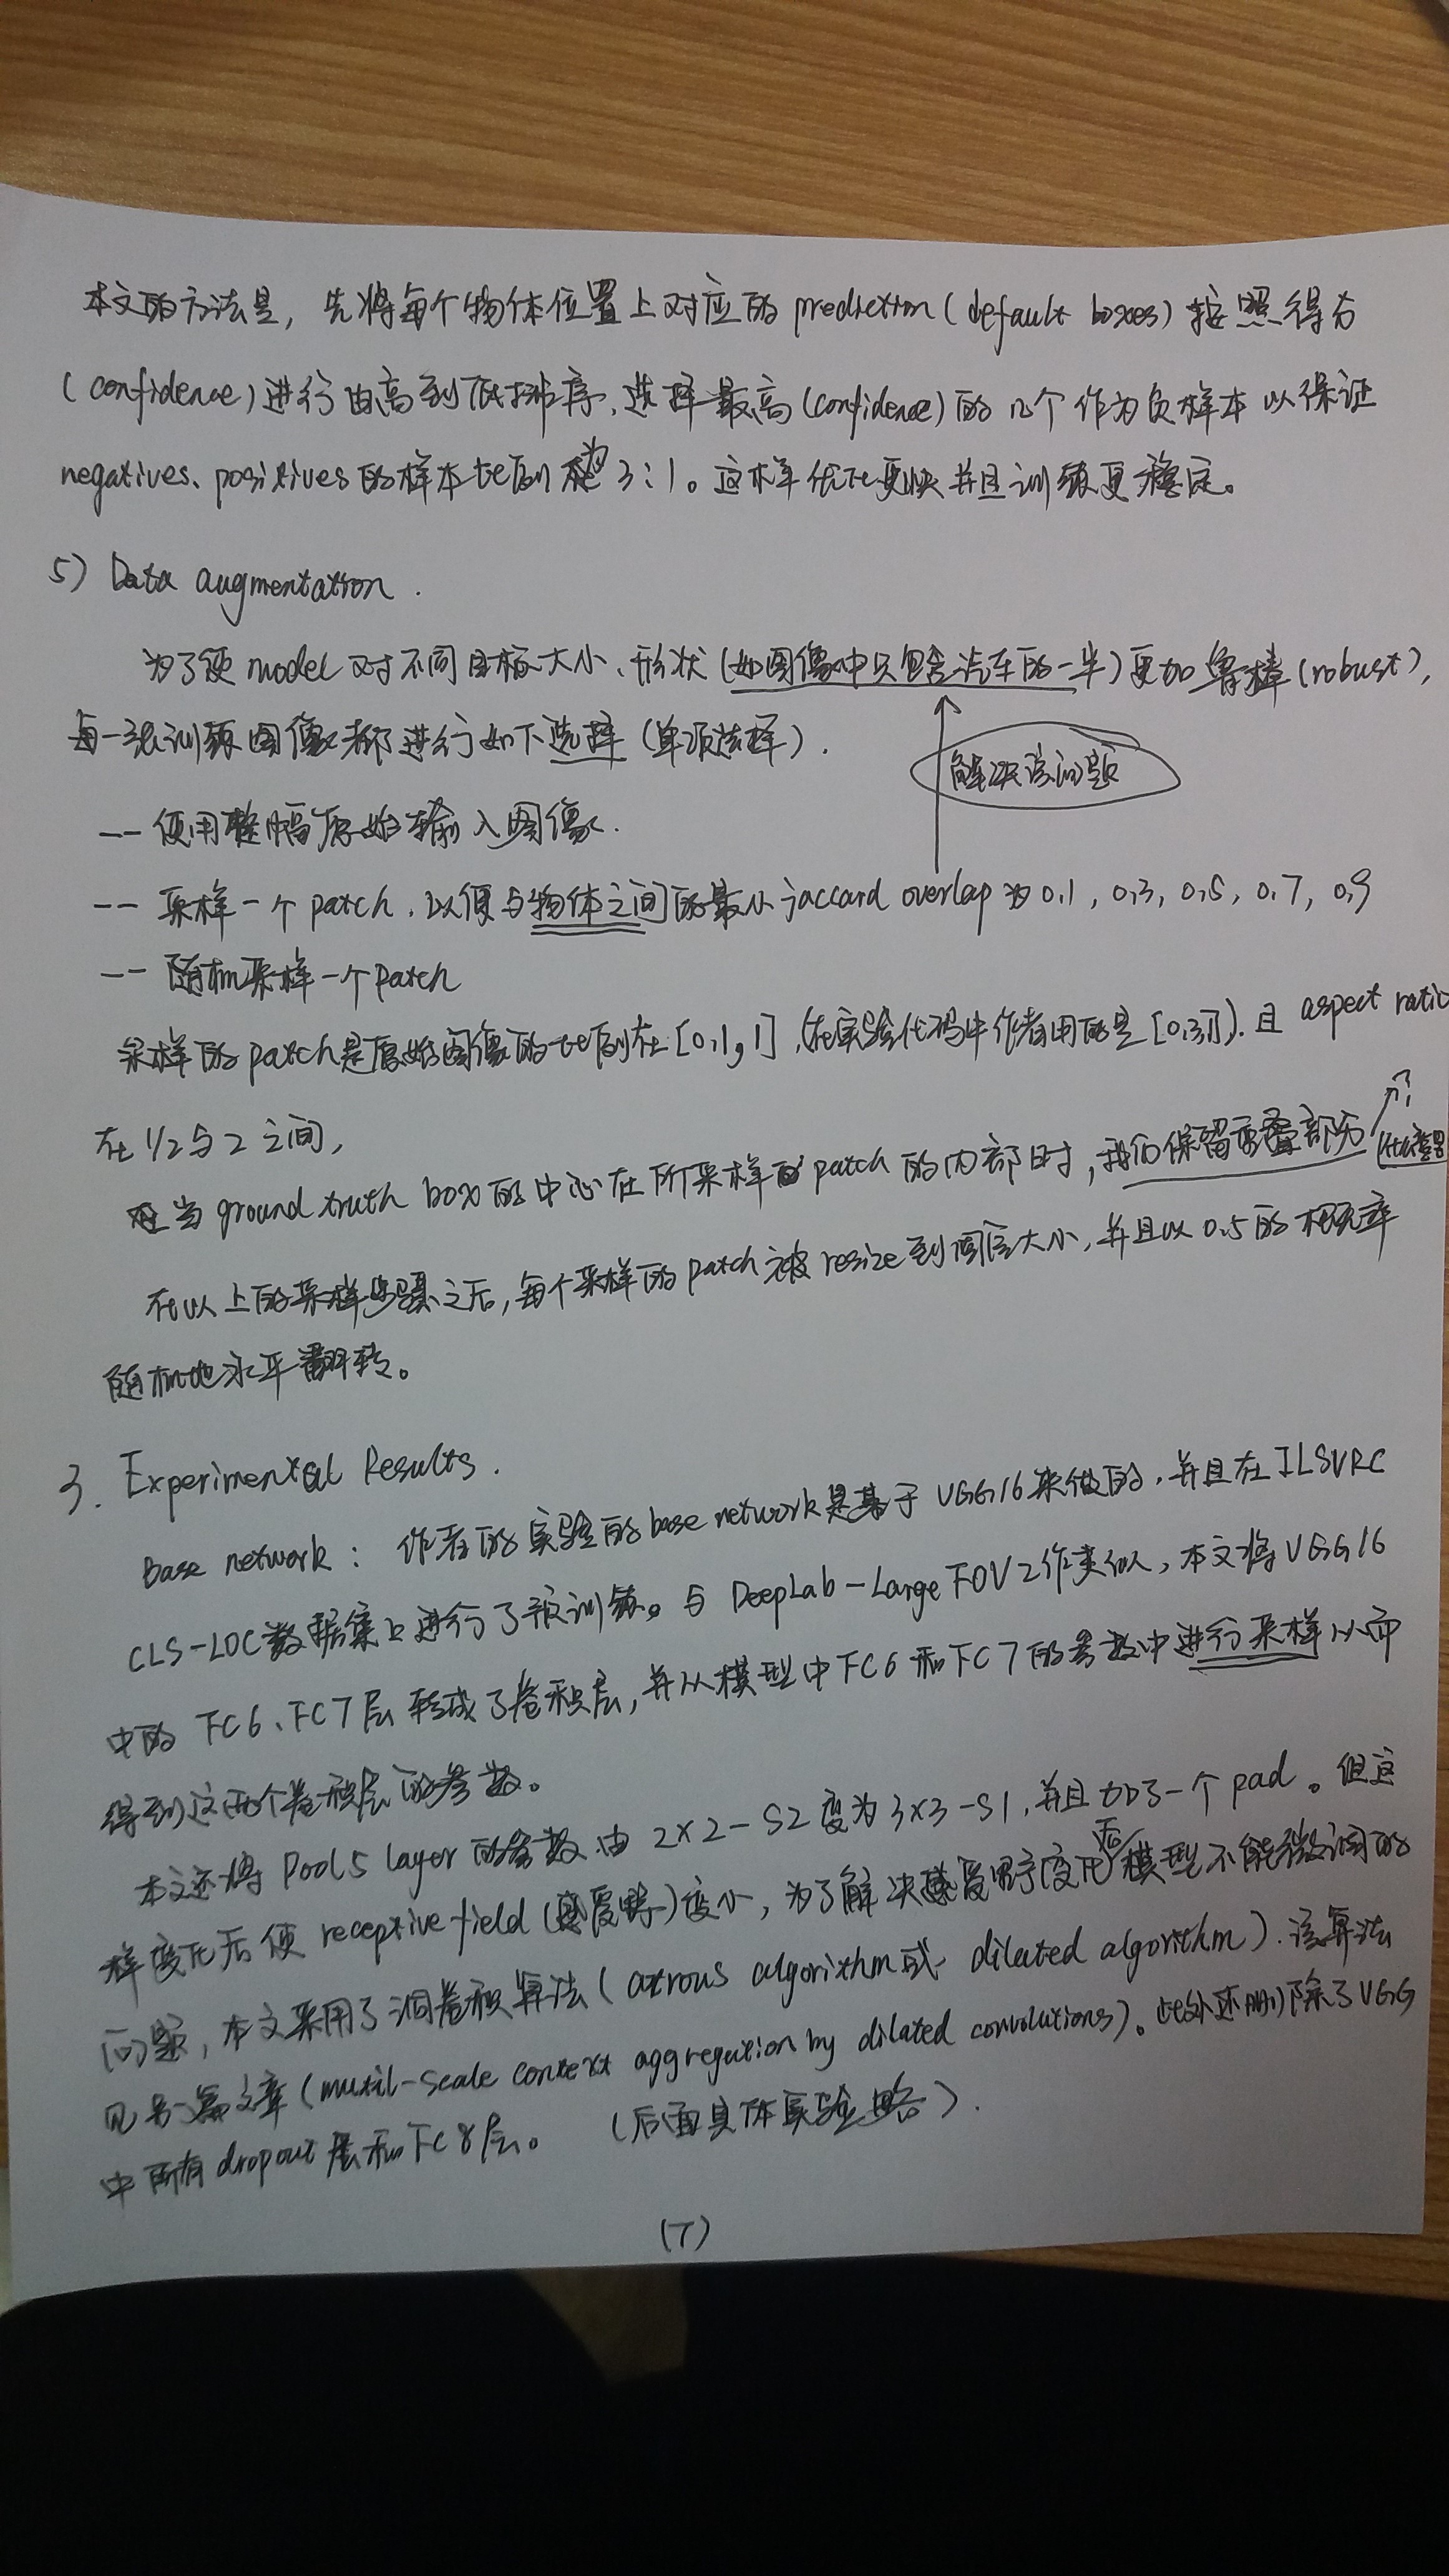 本文的方法是，先将每个物体位置上对应的 prediction (default boxes) 按照得分
(confidence) 进行由高到低排序，选择最高(confidence)的几个作为负样本以保证
negatives、positives的样本比例为3:1。这样优化更快并且训练更稳定。
5) Data augmentation.
为了使 model 对不同目标大小、形状 (如图像中只包含汽车的一半) 更加鲁棒 (robust),
每一张训练图像都进行如下选择 (单项选择).
解决该问题
-- 使用整幅原始输入图像.
-- 采样一个 patch, 以便与物体之间的最小 jaccard overlap 为 0.1, 0.3, 0.5, 0.7, 0.9
-- 随机采样一个 patch
采样的 patch是原始图像的比例在 [0.1, 1], (在实验代码中作者用的是 [0.3,1]). 且 aspect ratio
在 1/2 与 2 之间,
当 ground truth box 的中心在所采样的 patch 的内部时, 我们保留重叠部分
在以上的采样步骤之后, 每个采样的 patch 被 resize 到固定大小, 并且以 0.5 的概率
随机地水平翻转。
3. Experimental Results.
Base network: 作者的实验的 base network 是基于 VGG16 来做的, 并且在 ILSVRC
CLS-LOC 数据集上进行了预训练。与 DeepLab-Large FOV 工作类似, 本文将 VGG16
中的 FC6、FC7层 转成了卷积层, 并从模型中FC6 和 FC7 的参数中进行采样从而
得到这两个卷积层的参数。
本文还将 Pool5 layer 的参数由 2×2-S2 变为 3×3-S1, 并且加了一个 pad。但这
样变化后使 receptive field (感受野) 变小, 为了解决感受野变化后模型不能微调的
问题, 本文采用了洞卷积算法 (atrous algorithm 或 dilated algorithm). 该算法
见另一篇文章 (mutil-scale context aggregation by dilated convolutions)。此外还删除了 VGG
中所有 dropout 层和 FC8层。 (后面具体实验略).
(7)